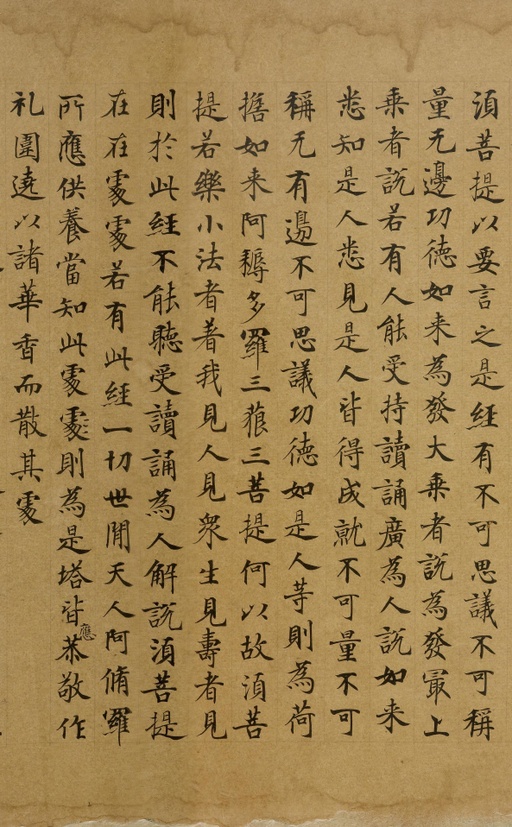 須菩提以要言之是經有不可思議不可稱
量无邊功德如来為發大乗者說為發冣上
乗者說若有人能受持讀誦廣為人說如来
悉知是人悉見是人皆得成就不可量不可
稱无有邊不可思議功德如是人等則為荷
擔如来阿耨多羅三藐三菩提何以故須菩
提若樂小法者著我見人見衆生見壽者見
則於此經不能聽受讀誦為人解說須菩提
在在處處若有此經一切世閒天人阿脩羅
所應供養當知此處處則為是塔皆應恭敬作
礼圍遶以諸華香而散其處